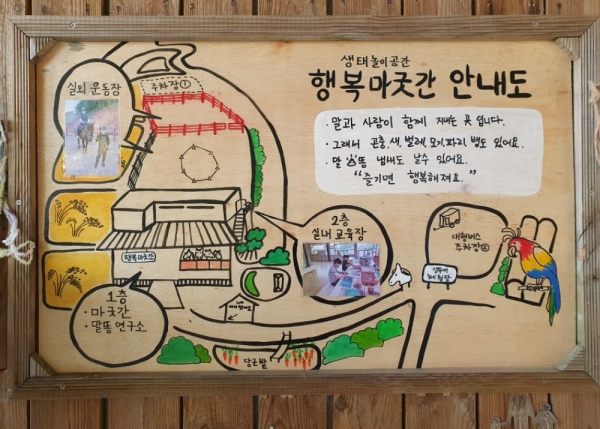 생태놀이공간
행복마굿간 안내도
· 말과 사람이 함께 지내는 곳 입니다.
· 그래서 곤충, 새, 벌레, 모기, 파리, 뱀도 있어요.
· 말 똥 냄새도 날수 있어요.
"즐기면 행복해져요."
실외 운동장
주차장①
2층
실내교육장
대형버스
주차장②
행복마굿간
1층
· 마굿간
· 말똥연구소
당근밭